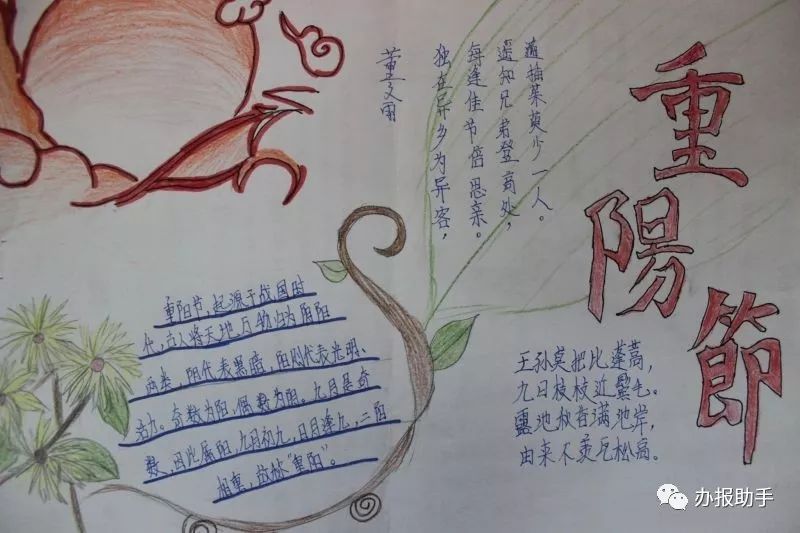 重陽節
董文雨
独在异乡为异客，
每逢佳节倍思亲。
遥知兄弟登高处，
遍插茱萸少一人。
重阳节，起源于战国时
代，古人将天地万物归为阴阳
两类，阴代表黑暗，阳则代表光明、
活力。奇数为阳，偶数为阴。九月是奇
数，因此属阳，九月初九，日月逢九，二阳
相重，故称“重阳”。
王孙莫把比蓬蒿，
九日枝枝近鬓毛。
露池秋香满池岸，
由来不羡瓦松高。
办报助手